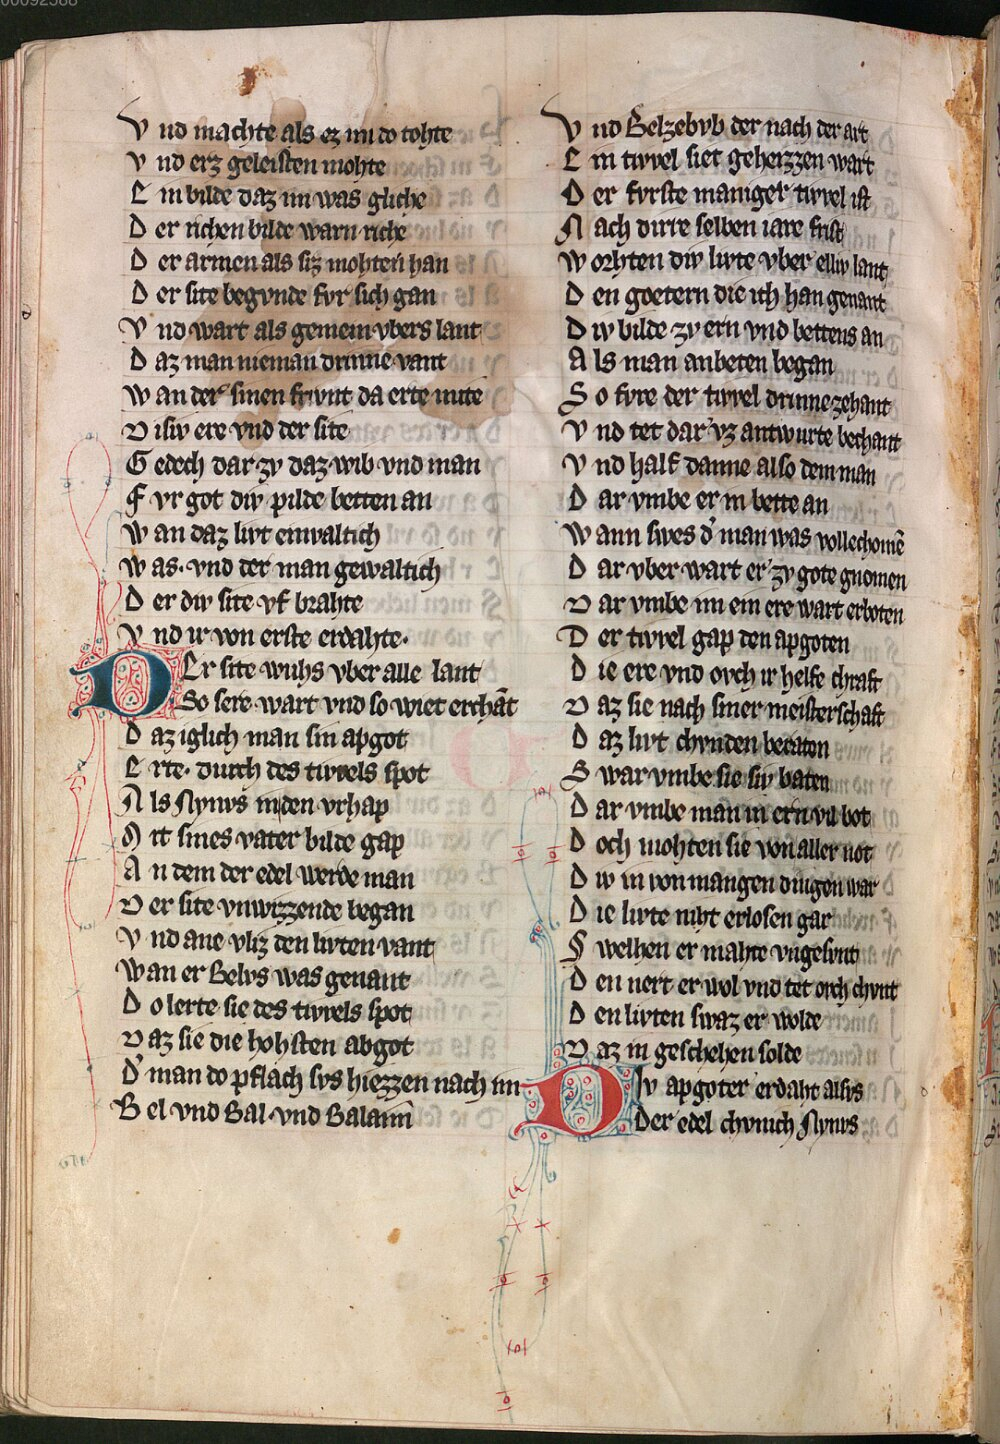 00092588
Vnd machte als ez im do tohte
Vnd erz geleisten mohte
Ein bilde daz im was gliche
Der richen bilde warn riche
Der armen als siz mohten han
Der site begvnde fvr sich gan
Vnd wart als gemein vbers lant
Daz man nieman drinne vant
Wan der sinen frivnt da erte mite
Disiv ere vnd der site
Gedech dar zv daz wib vnd man
Fvr got div pilde betten an
Wan daz livt einvaltich
Was. vnd der man gewaltich
Der div site vf brahte
Vnd ir von erste erdahte.
Der site wuhs vber alle lant
So sere wart vnd so wiet erchāt
Daz iglich man sin apgot
Erte. durch des tivvels spot
Als Nynvs in den vrhap
Mit sines vater bilde gap
An dem der edel werde man
Der site vnwizzende began
Vnd ane vliz den livten vant
Wan er Belvs was genant
Do lerte sie des tivvels spot
Daz sie die hohsten abgot
D' man do pflach svs hiezzen nach im
Bel vnd Bal vnd Balaim
Vnd Belzebvb der nach der art
Ein tivvel siet geheizzen wart
Der fvrste maniger tivvel ist
Nach dirre selben iare frist
Worhten div livte vber elliv lant
Den goetern die ich han genant
Div bilde zv ern vnd bettens an
Als man anbeten began
So fvre der tivvel drinne zehant
Vnd tet dar vz antwurte bechant
Vnd half danne also dem man
Dar vmbe er in bette an
Wann swes d' man was vollechomē
Dar vber wart er zv gote gnomen
Dar vmbe im ein ere wart erboten
Der tivvel gap den apgoten
Die ere vnd ovch ir helfe chraft
Daz sie nach siner meisterschaft
Daz livt chvnden beraten
Swar vmbe sie siv baten
Dar vmbe man in ern vil bot
Doch mohten sie von aller not
Div in von mangen dingen war
Die livte niht erlosen gar
Swelhen er mahte vngesvnt
Den nert er wol vnd tet ovch chvnt
Den livten swaz er wolde
Daz in geschehen solde
Div apgoter erdaht alsvs
Der edel chvnich Nynvs